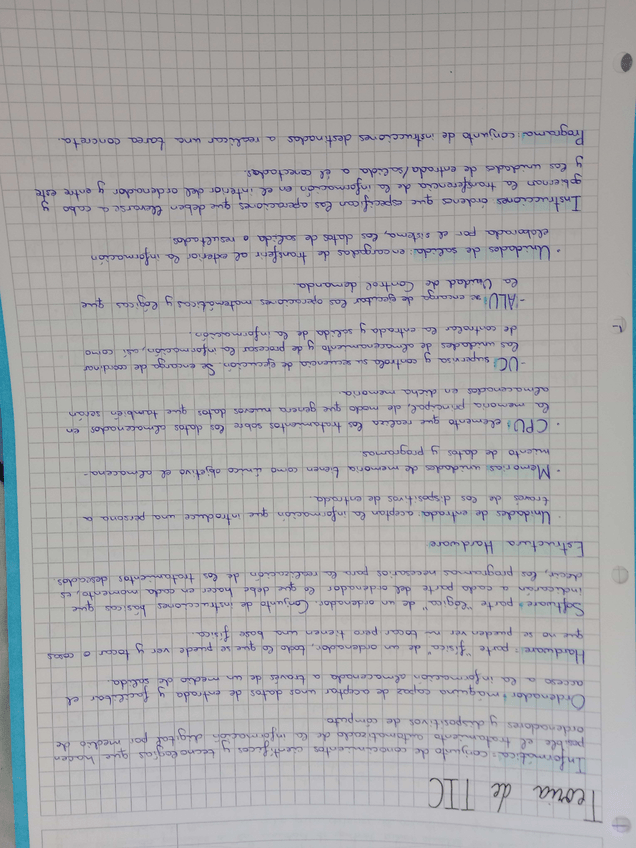 Teoria de TIC
Informática: conjunto de conocimientos científicos y tecnologias que hacen
posible el tratamiento automaticado de la información digital por medio de
ordenadores y dispositivos de cómputo
Ordenador: máquina capaz de aceptar unos datos de entrada y facilitar el
acceso a la información almacenada a través de un medio de salida.
Hardware: parte "física" de un ordenador, todo lo que se puede ver y tocar o cosas
que no se pueden ver ni tocar pero tienen una base física.
Software: parte "lógica" de un ordenador. Conjunto de instrucciones básicas que
indicarán a cada parte del ordenador lo que debe hacer en cada momento, es
decir, los programas necesarios para la realización de los tratamientos deseados
Estructura Hardware
· Unidades de entrada: aceptan la información que introduce una persona a
traves de los dispositivos de entrada.
· Memorias: unidades de memoria tienen como único objetivo el almacena-
miento de datos y programas
· CPU: elemento que realiza los tratamientos sobre los datos almacenados en
la memoria principal, de modo que genera nuevos datos que también serán
almacenados en dicha memoria.
-UC: supervisa y controla su secuencia de ejecución. Se encarga de coordinar
las unidades de almacenamiento y de procesar la información, así como
de controlar la entrada y salida de la información.
-ALU: se encarga de ejecutar las operaciones matemáticas y lógicas que
la Unidad de Control demanda.
· Unidades de salida: encargadas de transferir al exterior la información
elaborada por el sistema, los datos de salida o resultados
Instrucciones: órdenes que especifican las operaciones que deben llevarse a cabo y
gobiernan la transferencia de la información en el interior del ordenador y entre este
y las unidades de entrada/salida a él conectadas
Programa: conjunto de instrucciones destinadas a realizar una tarea concreta.